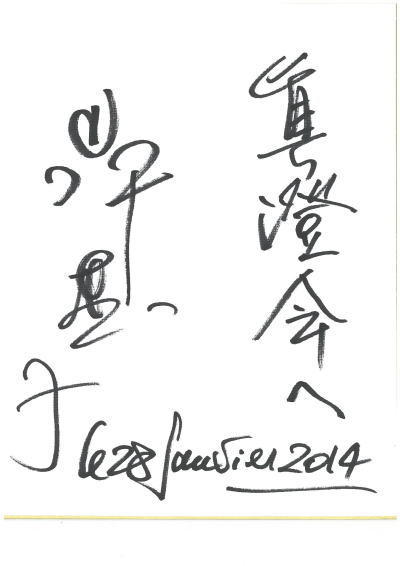 眞澄会へ
岸惠子
le 28 Janvier 2014